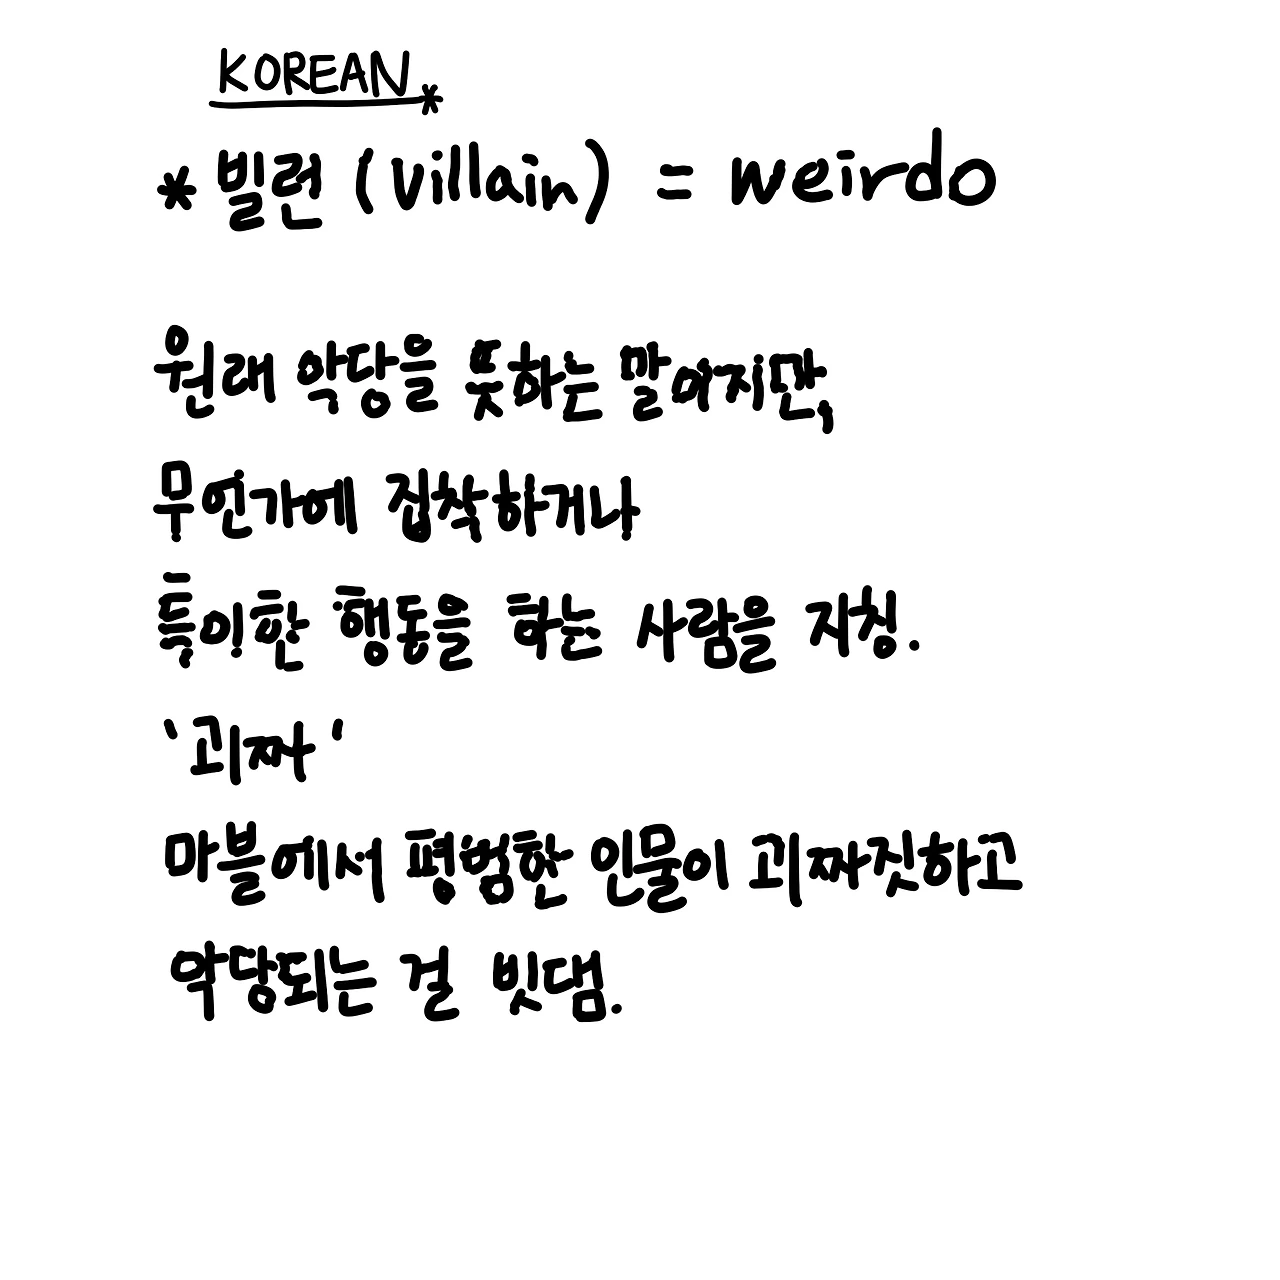 KOREAN*
* 빌런 (Villain) = weirdo
원래 악당을 뜻하는 말이지만,
무언가에 집착하거나
특이한 행동을 하는 사람을 지칭.
'괴짜'
마블에서 평범한 인물이 괴짜짓하고
악당되는 걸 빗댐.